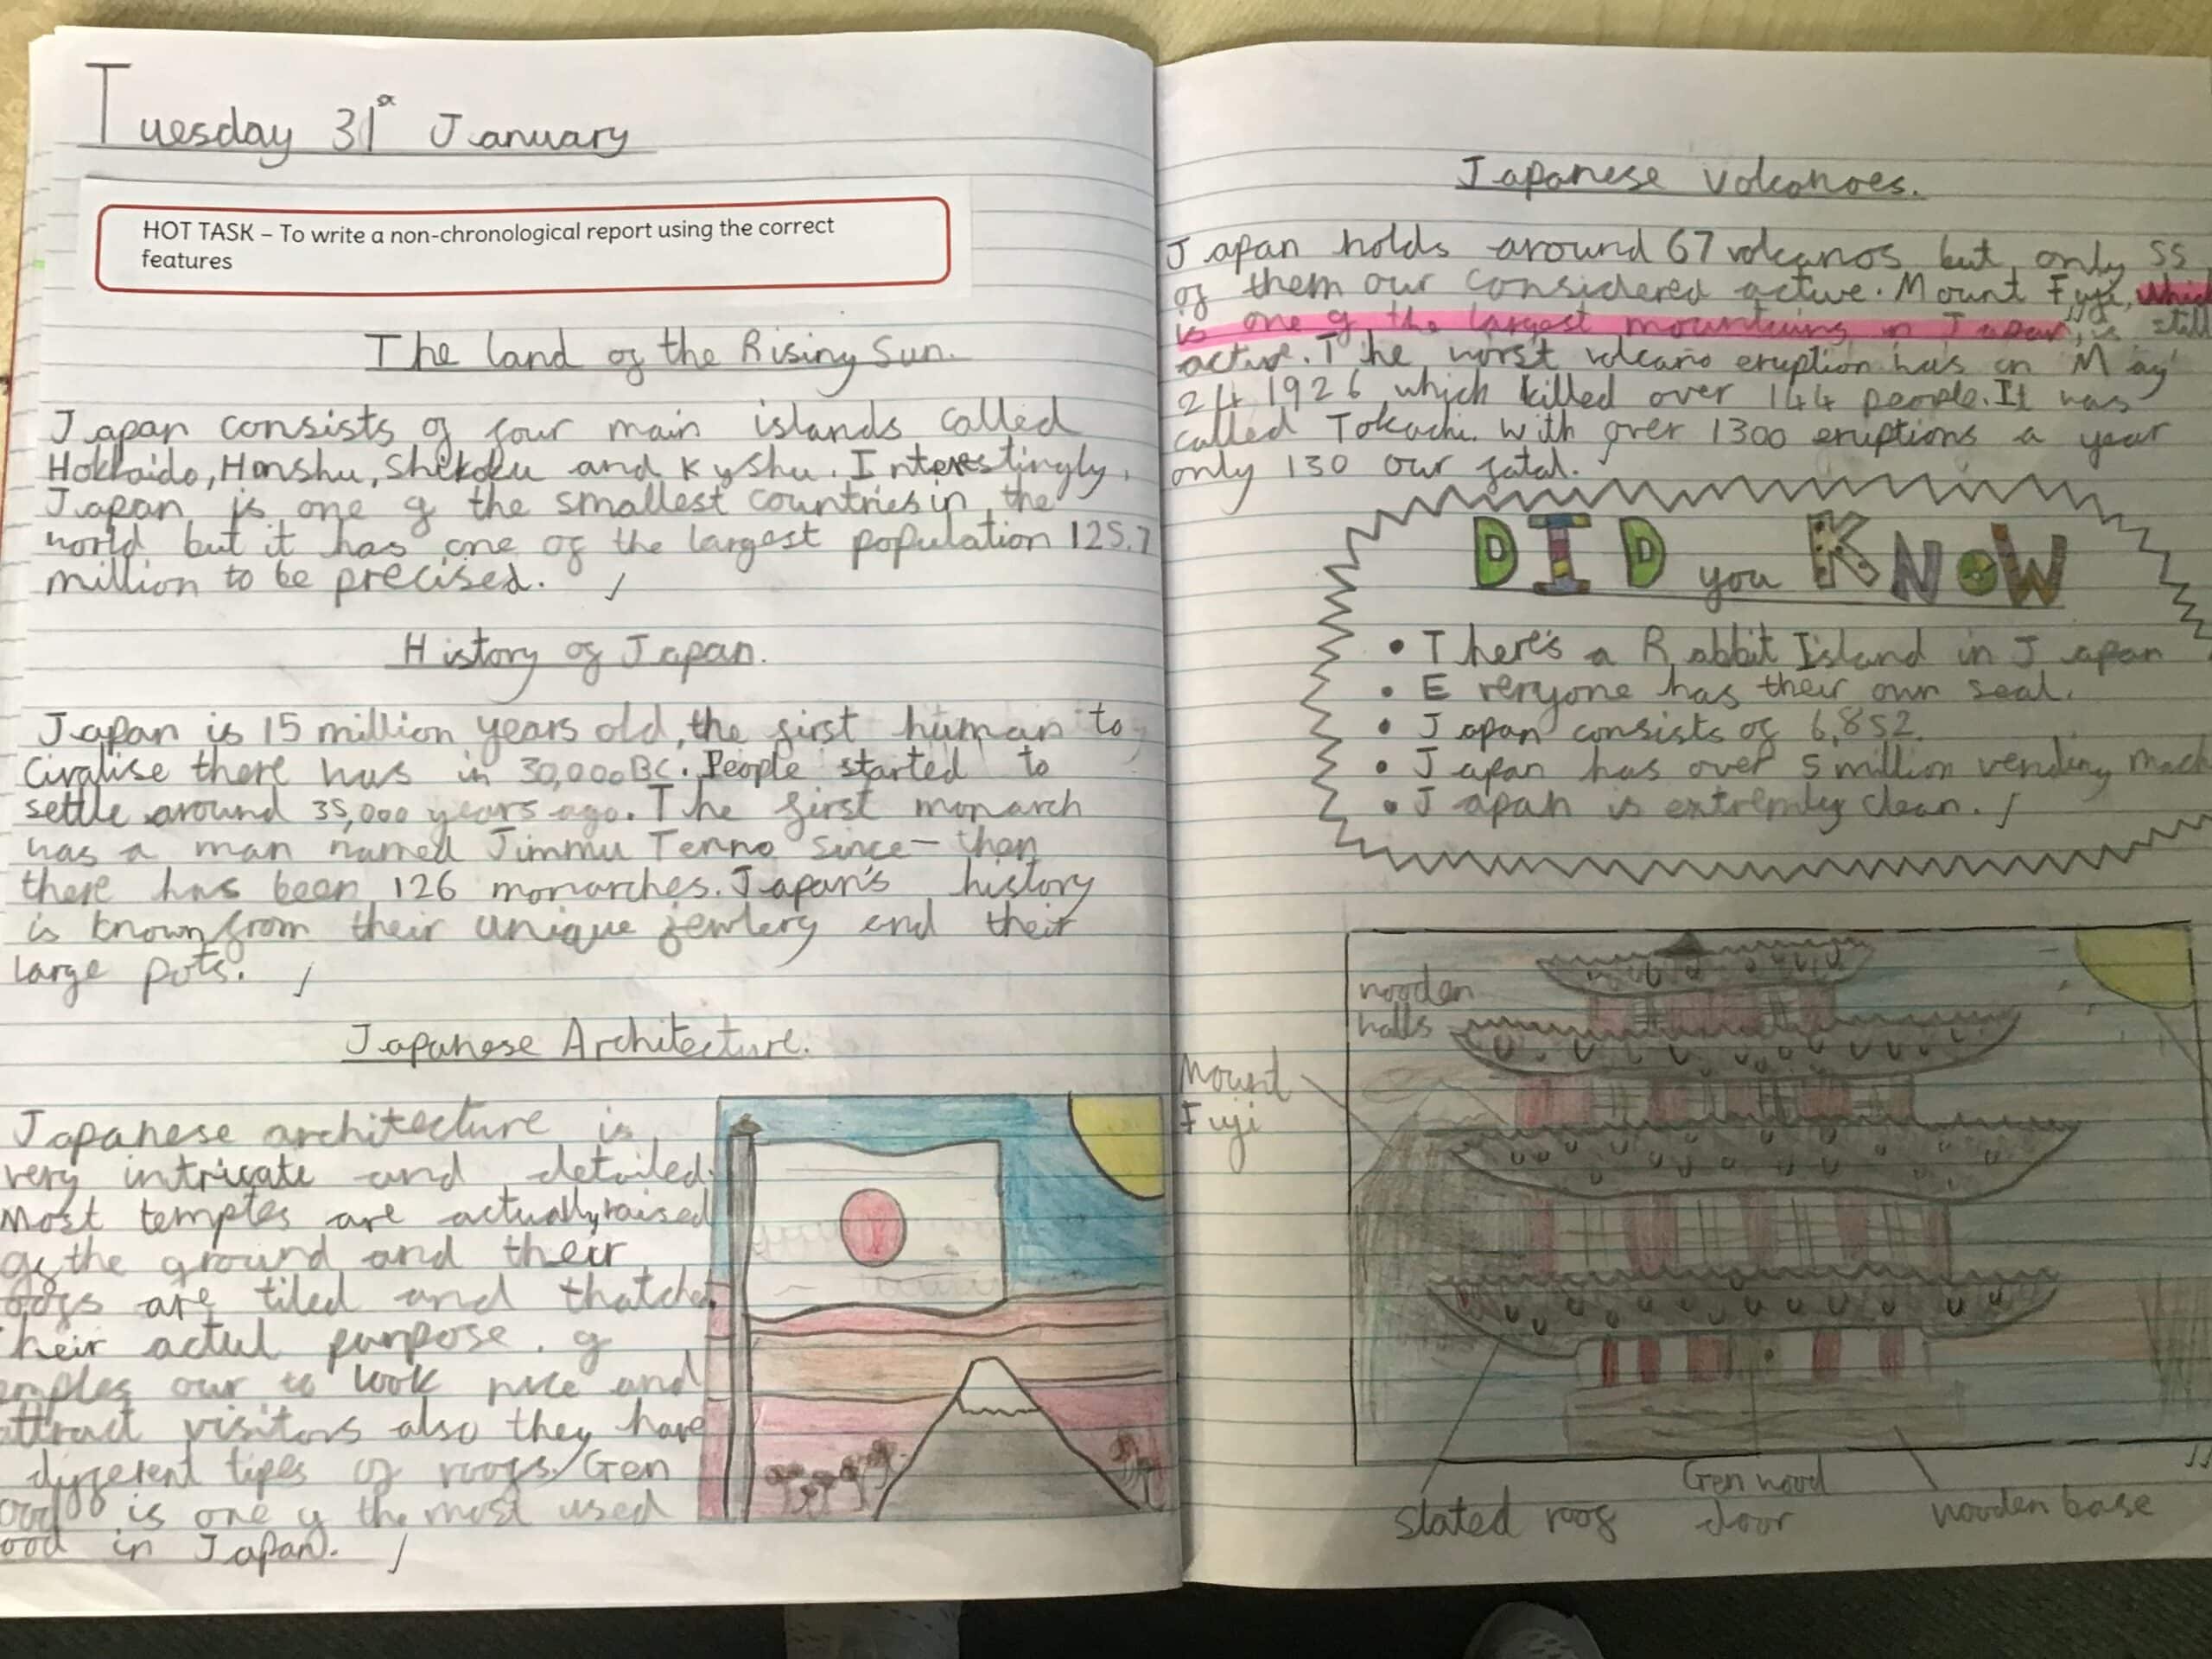 Tuesday 31st January
HOT TASK – To write a non-chronological report using the correct
features
The land of the Rising Sun.
Japan consists of four main islands called
Hokkaido, Honshu, Shikoku and Kyshu. Interestingly,
Japan is one of the smallest countries in the
world but it has one of the largest population 125.7
million to be precised.
History of Japan.
Japan is 15 million years old, the first human to
civalise there was in 30,000BC. People started to
settle around 35,000 years ago. The first monarch
was a man named Jimmu Tenno since-then
there has been 126 monarches. Japan's history
is known from their unique jewlery and their
large pots.
Japanese Architecture.
Japanese architecture is
very intricate and detailed.
Most temples are actually raised
of the ground and their
oofs are tiled and thatched
heir actul purpose. of
emples our to look nice and
attract visitors also they have
different tipes of roofs. Gen
ood is one of the most used
ood in Japan.
Japanese Volcanoes.
Japan holds around 67 volcanos but only 55
of them our considered active. Mount Fuji, which
is one of the largest mountains in Japan, is still
active. The worst volcano eruption was on May
24 1926 which killed over 144 people. It was
called Tokachi. With over 1300 eruptions a year
only 130 our fatal.
DID you KNOW
• There's a Rabbit Island in Japan
• Everyone has their own seal.
• Japan consists of 6,852.
• Japan has over 5 million vending mach
• Japan is extremly clean.
wooden
walls
Mount
Fuji
slated roof
Gen wood
door
wooden base